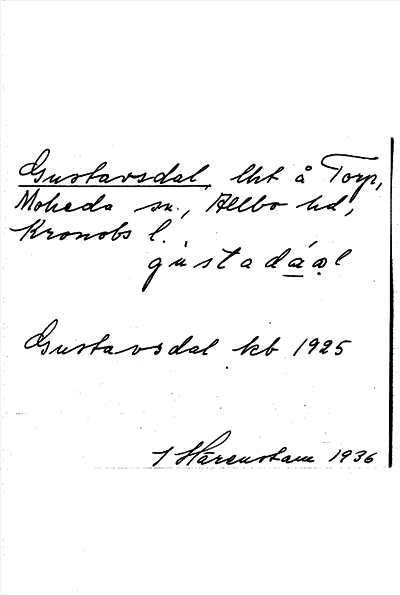 Gustavsdal, lht å Torp,
Moheda sn., Allbo hd,
Kronobs l.
gùstadáal
Gustavsdal kb 1925
J Härenstam 1936